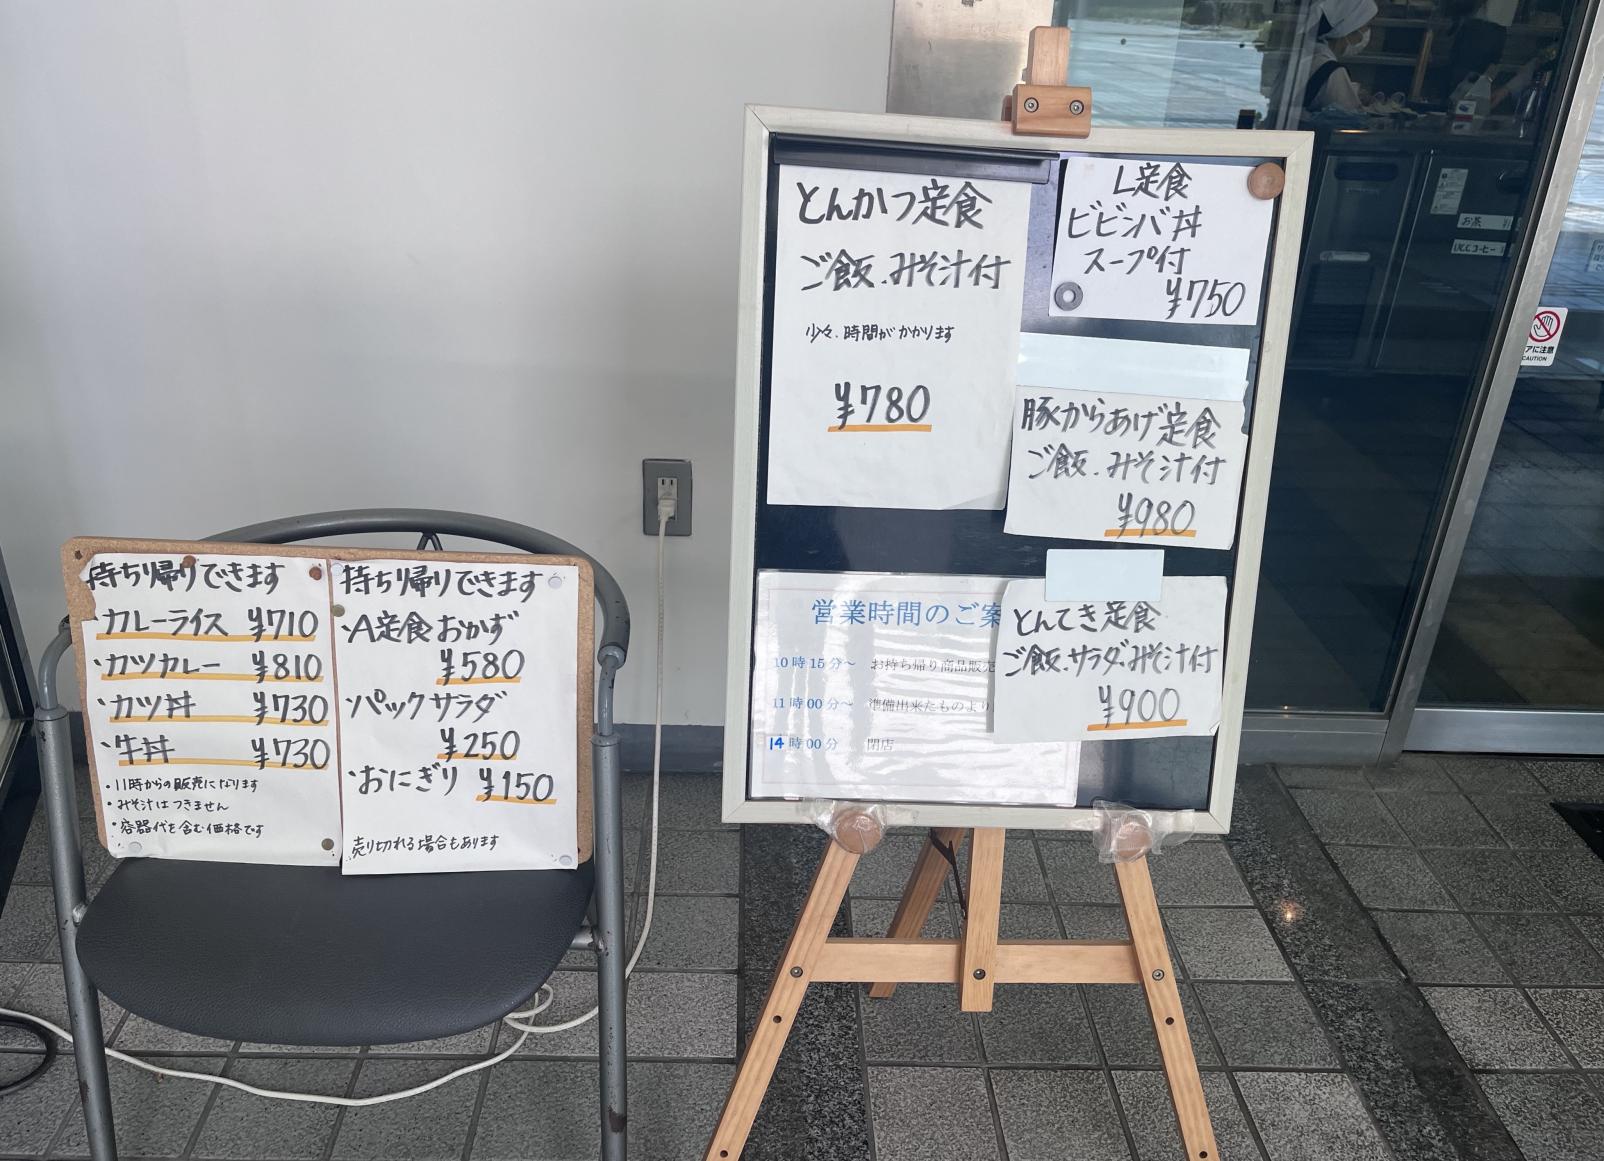 持ち帰りできます
・カレーライス ¥710
・カツカレー ¥810
・カツ丼 ¥730
・牛丼 ¥730
・11時からの販売になります
・みそ汁はつきません
・容器代を含む価格です
持ち帰りできます
・A定食おかず
¥580
・パックサラダ
¥250
・おにぎり ¥150
売り切れる場合もあります
とんかつ定食
ご飯.みそ汁付
少々.時間がかかります
¥780
L定食
ビビンバ丼
スープ付
¥750
豚からあげ定食
ご飯.みそ汁付
¥980
営業時間のご案
10時15分～ お持ち帰り商品販売
11時00分～ 準備出来たものより
14時00分 閉店
とんてき定食
ご飯.サラダ.みそ汁付
¥900
お茶
UCCコーヒー
アに注意
CAUTION